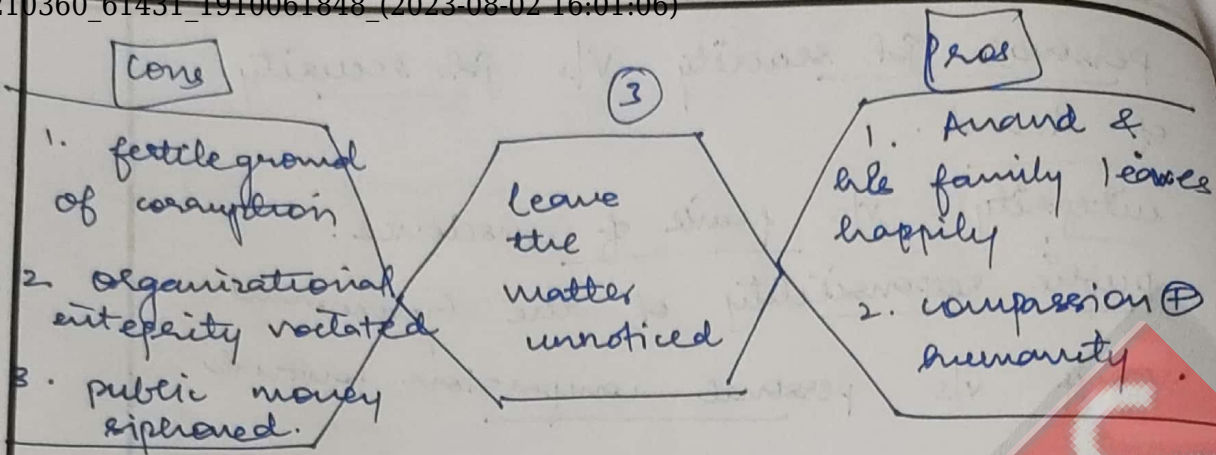 10360_61431_1910061848_(2023-08-02 16:01:06)
Cons
1. fertile ground
of corruption
2. organizational
integrity violated
3. public money
siphoned.
3
leave
the
matter
unnoticed
Pros
1. Anand &
his family leaves
happily
2. compassion +
humanity.